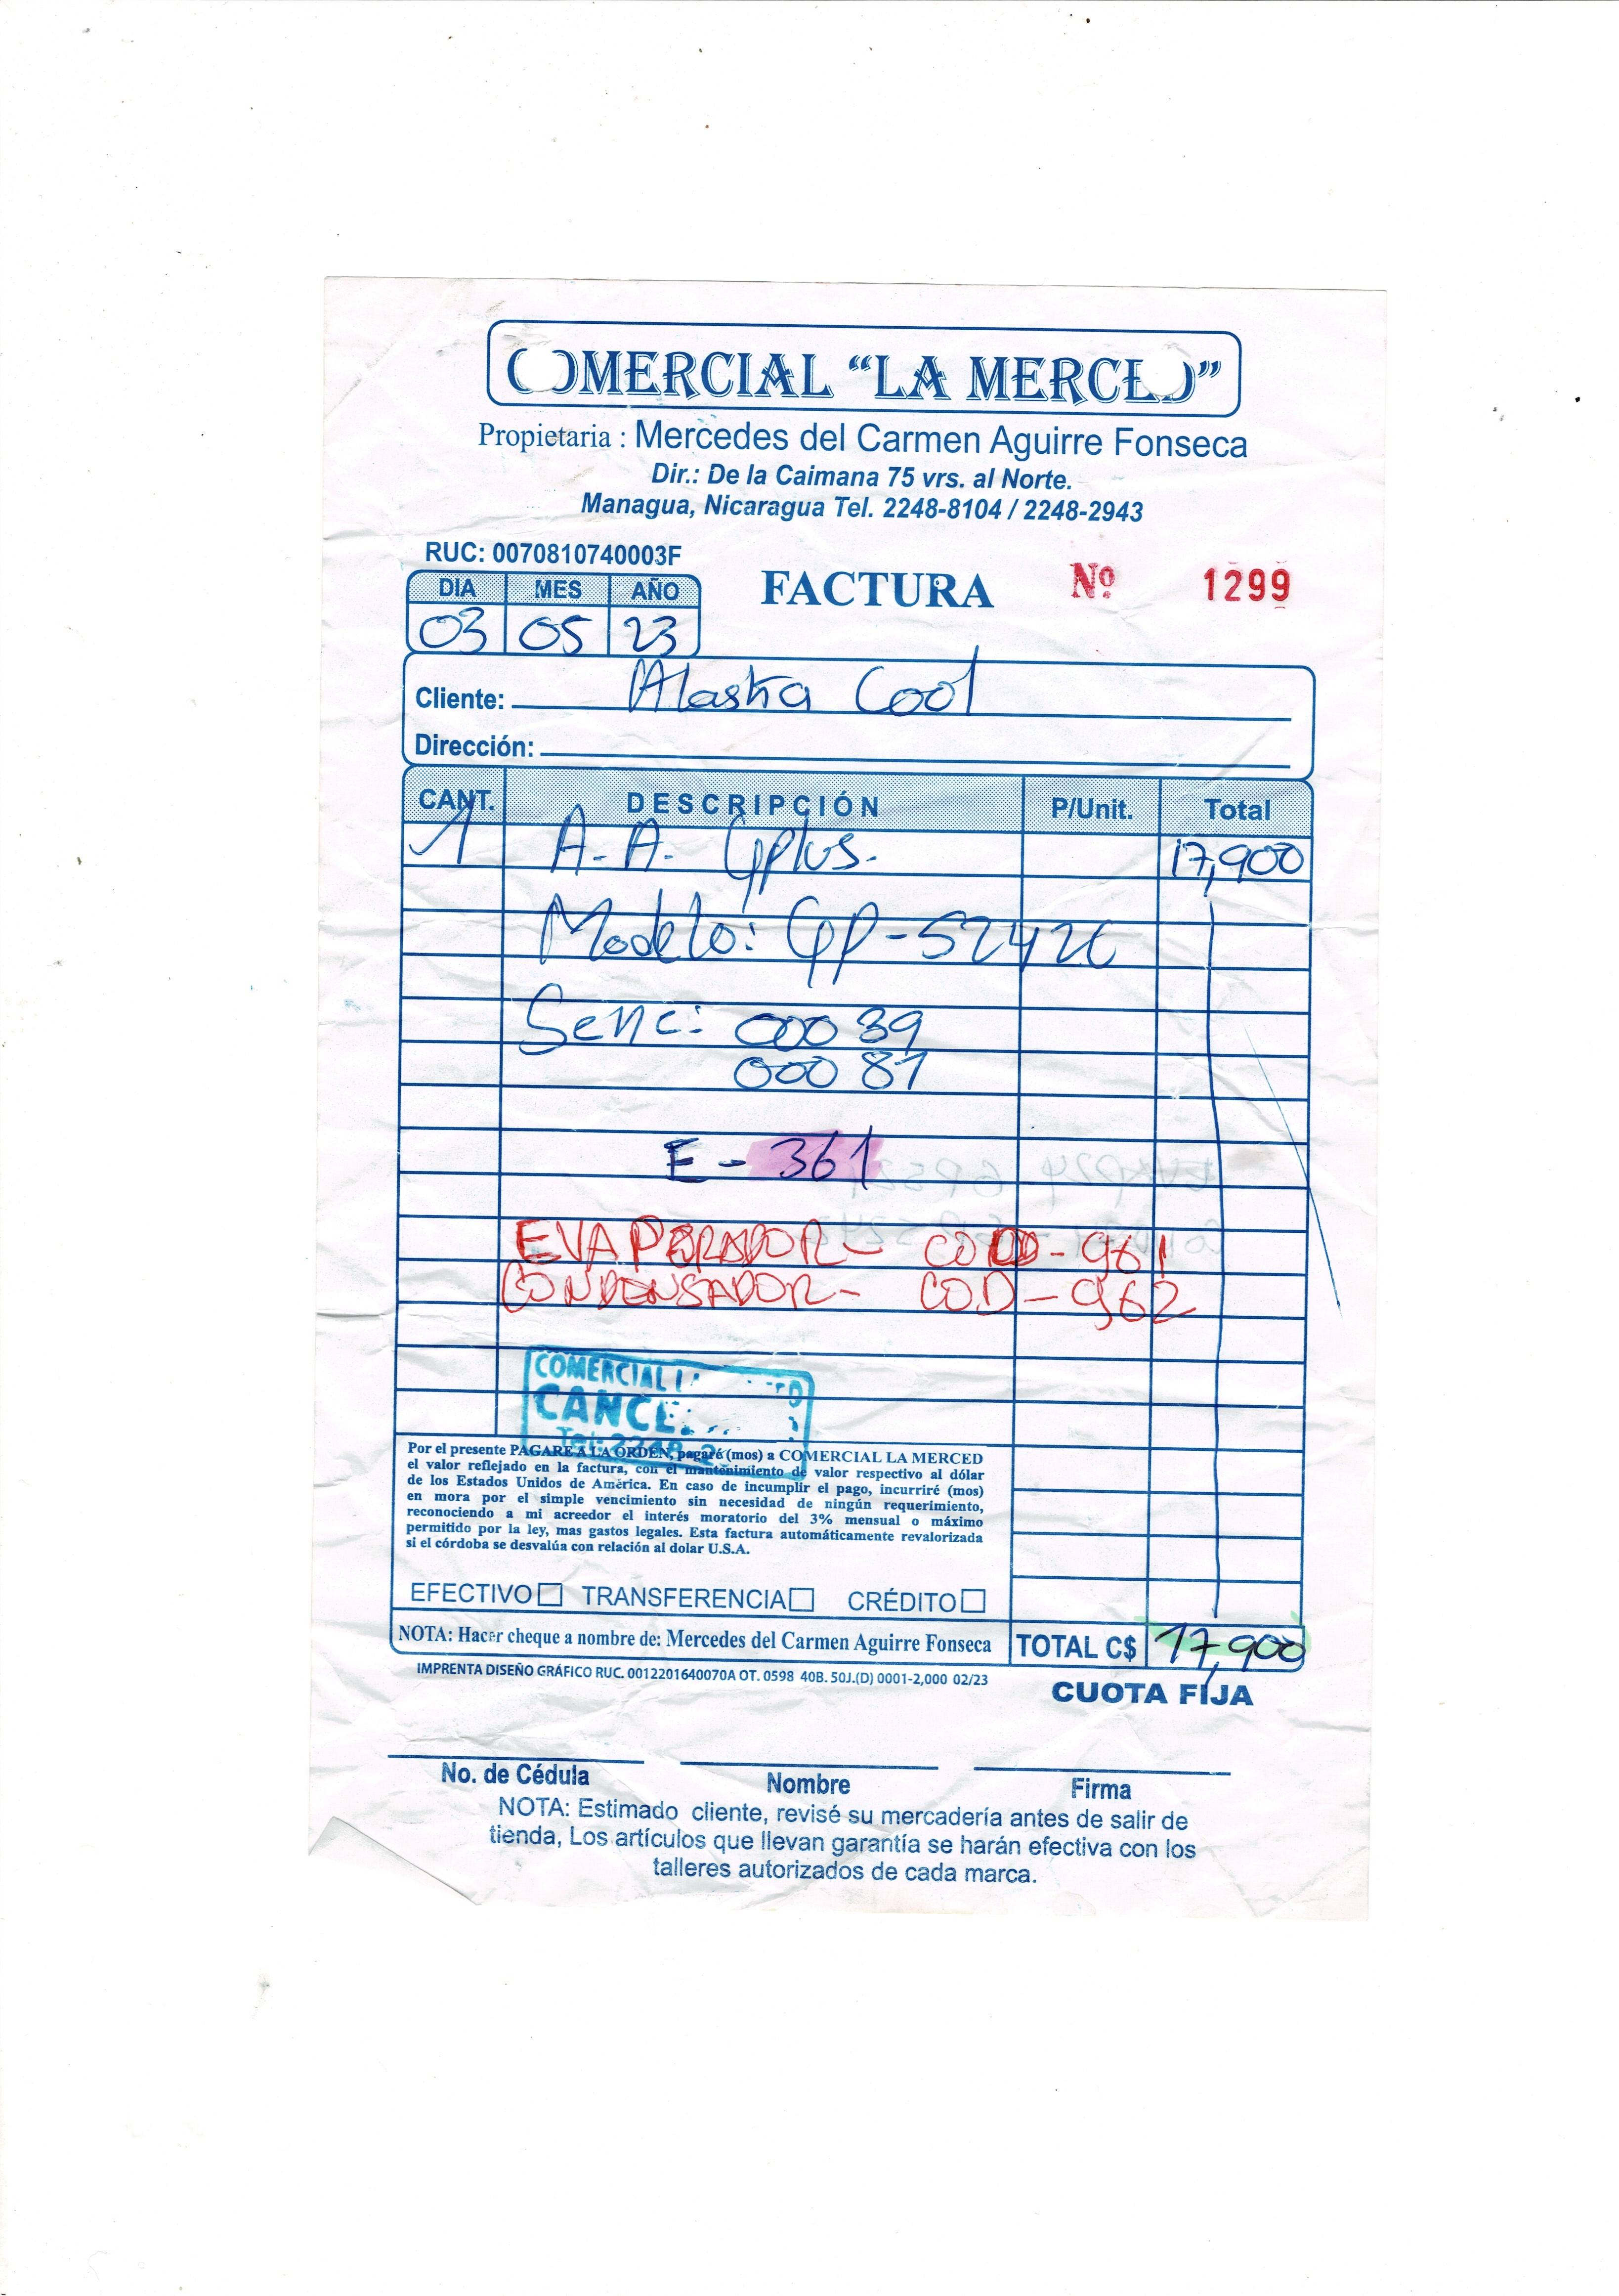 COMERCIAL "LA MERCED"
Propietaria : Mercedes del Carmen Aguirre Fonseca
Dir.: De la Caimana 75 vrs. al Norte.
Managua, Nicaragua Tel. 2248-8104 / 2248-2943
RUC: 0070810740003F
DIA MES AÑO
03 05 23
FACTURA Nº 1299
Cliente: Alaska Cool
Dirección:
CANT. DESCRIPCIÓN P/Unit. Total
1 A.A. Gplus. 17,900
Modelo: GP-S242C
Serie: 00039
00087
E - 361
EVAPERADOR - COD - 961
CONDENSADOR - COD - 962
COMERCIAL
Por el presente PAGARE A LA ORDEN, pagaré (mos) a COMERCIAL LA MERCED
el valor reflejado en la factura, con el mantenimiento de valor respectivo al dólar
de los Estados Unidos de América. En caso de incumplir el pago, incurriré (mos)
en mora por el simple vencimiento sin necesidad de ningún requerimiento,
reconociendo a mi acreedor el interés moratorio del 3% mensual o máximo
permitido por la ley, mas gastos legales. Esta factura automáticamente revalorizada
si el córdoba se desvalúa con relación al dolar U.S.A.
EFECTIVO TRANSFERENCIA CRÉDITO
NOTA: Hacer cheque a nombre de: Mercedes del Carmen Aguirre Fonseca TOTAL C$ 17,900
IMPRENTA DISEÑO GRÁFICO RUC. 0012201640070A OT. 0598 40B. 50J.(D) 0001-2,000 02/23
CUOTA FIJA
No. de Cédula Nombre Firma
NOTA: Estimado cliente, revisé su mercadería antes de salir de
tienda, Los artículos que llevan garantía se harán efectiva con los
talleres autorizados de cada marca.